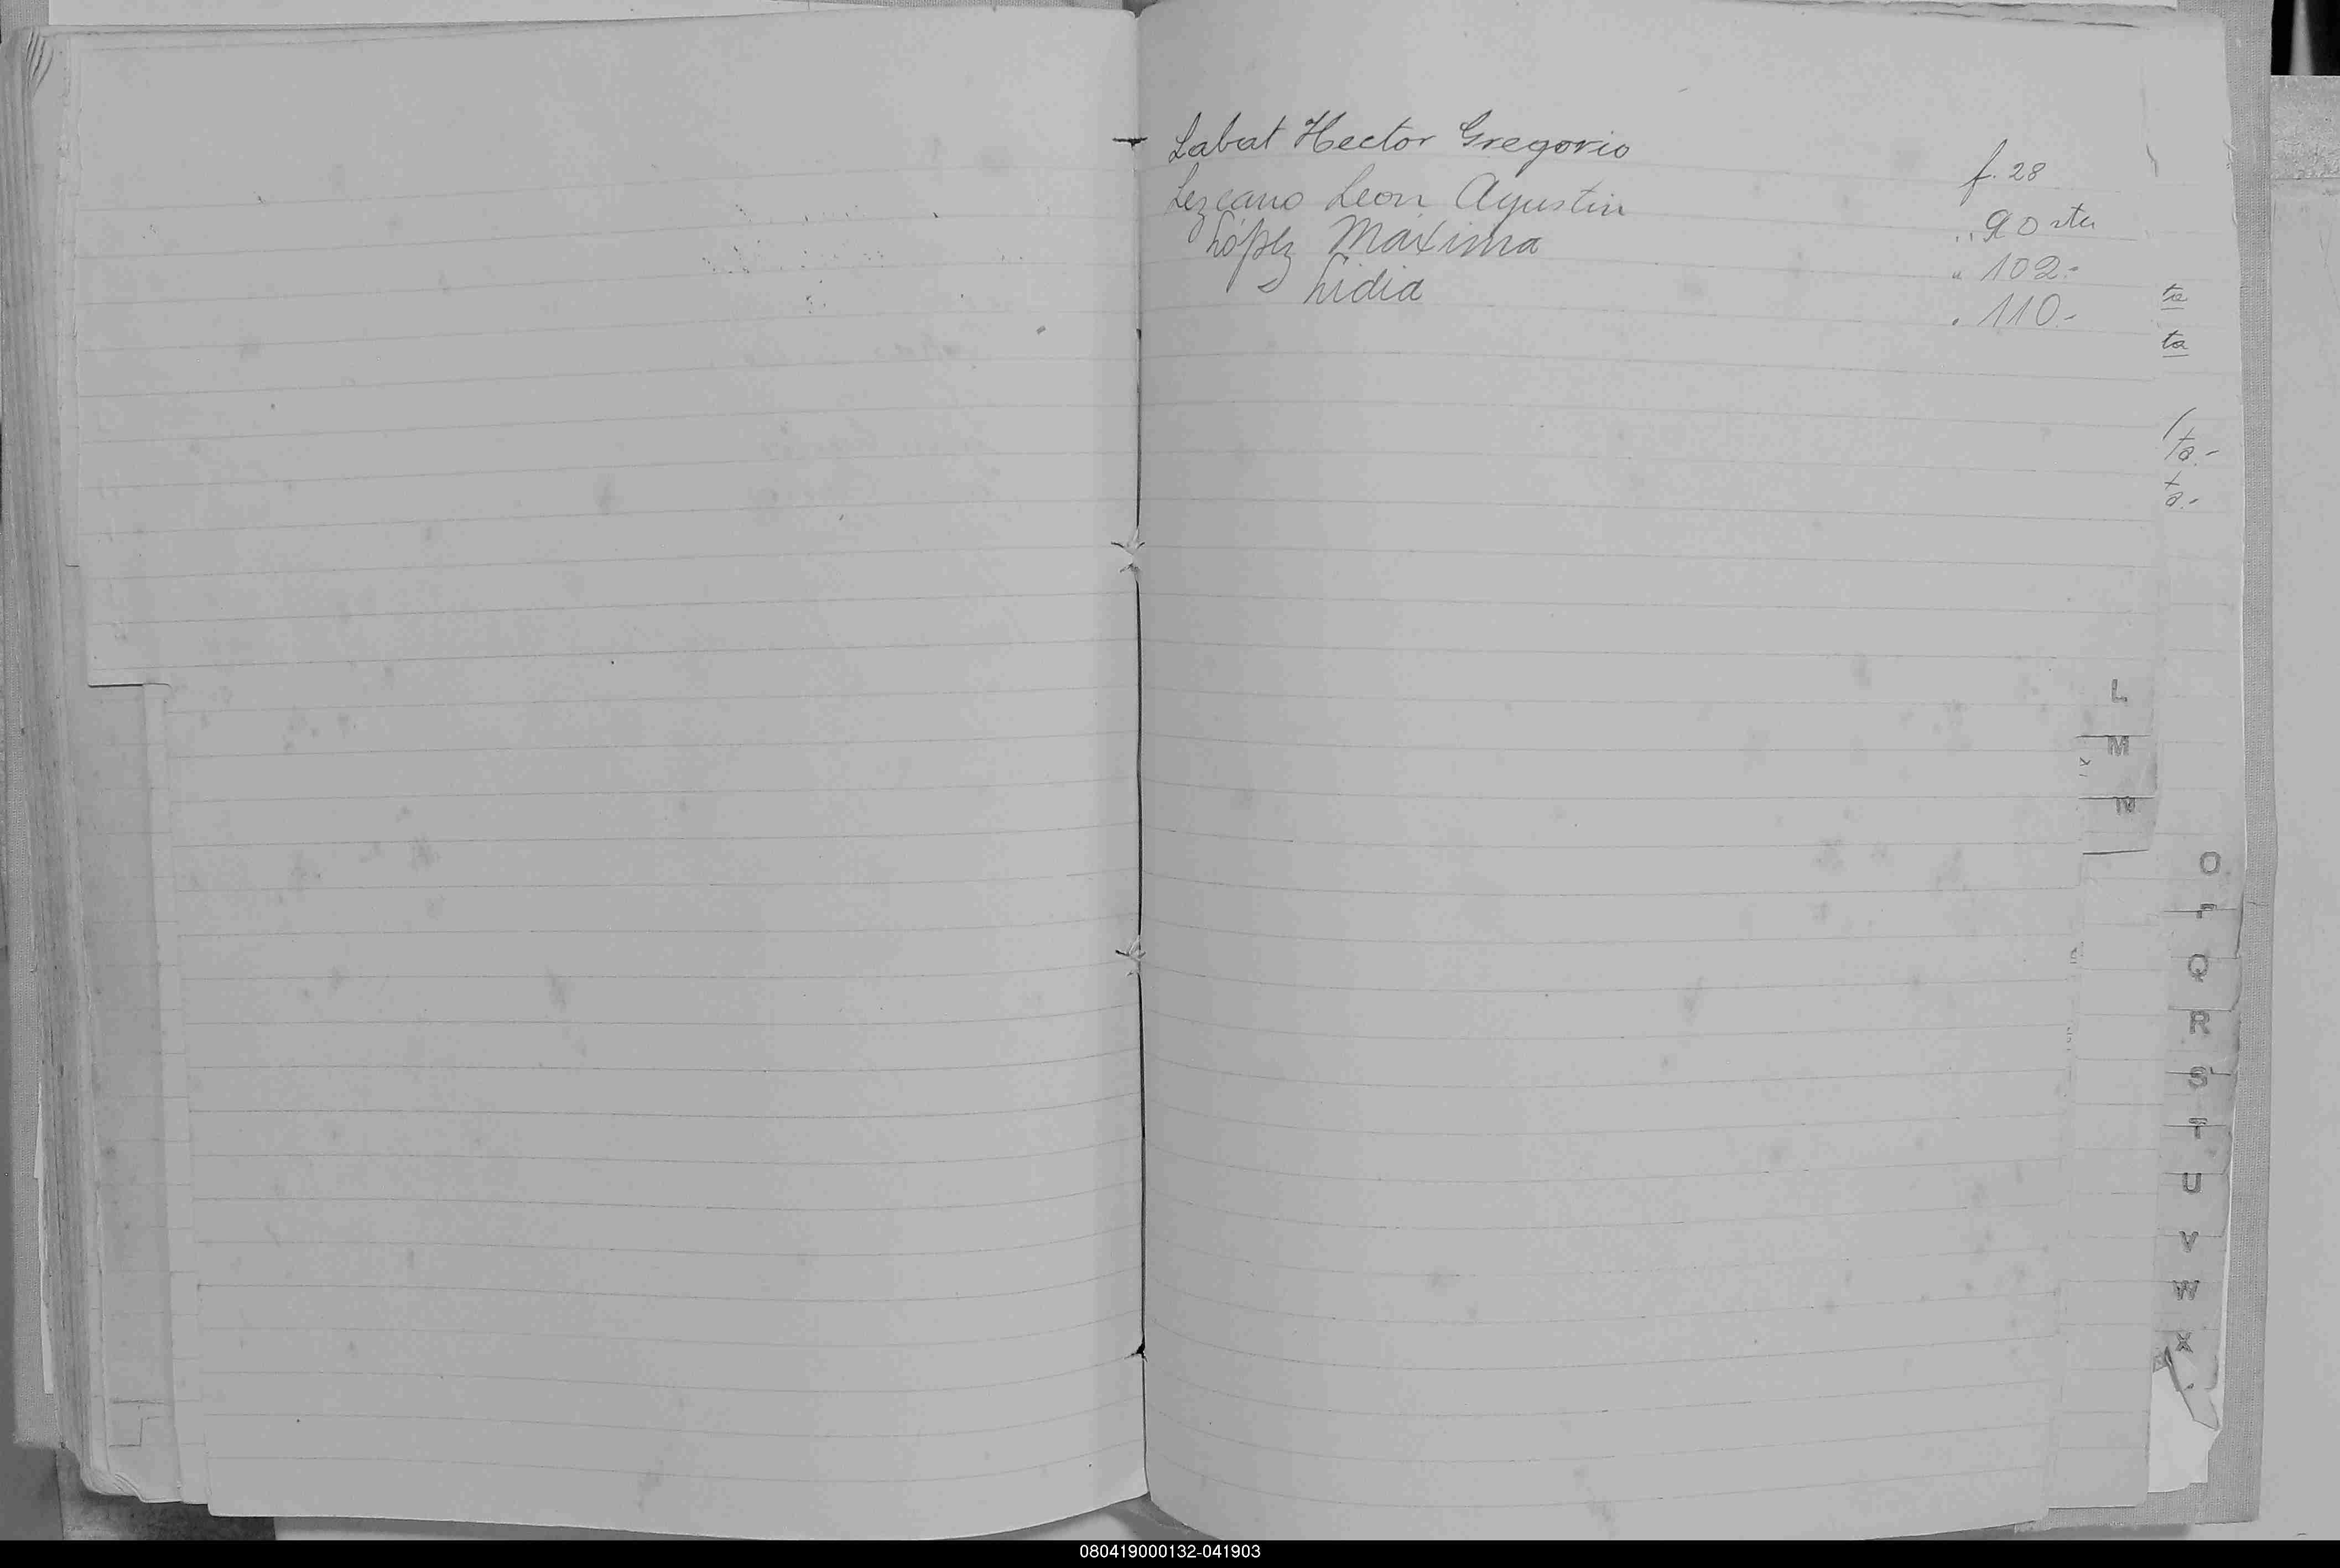 Labat Hector Gregorio f. 28
Lezcano Leon Agustin " 90 vta
López Maxima " 102.-
" Lidia " 110.-
ta
ta
ta.-
ta.-
L
M
N
O
P
Q
R
S
T
U
V
W
X
080419000132-041903